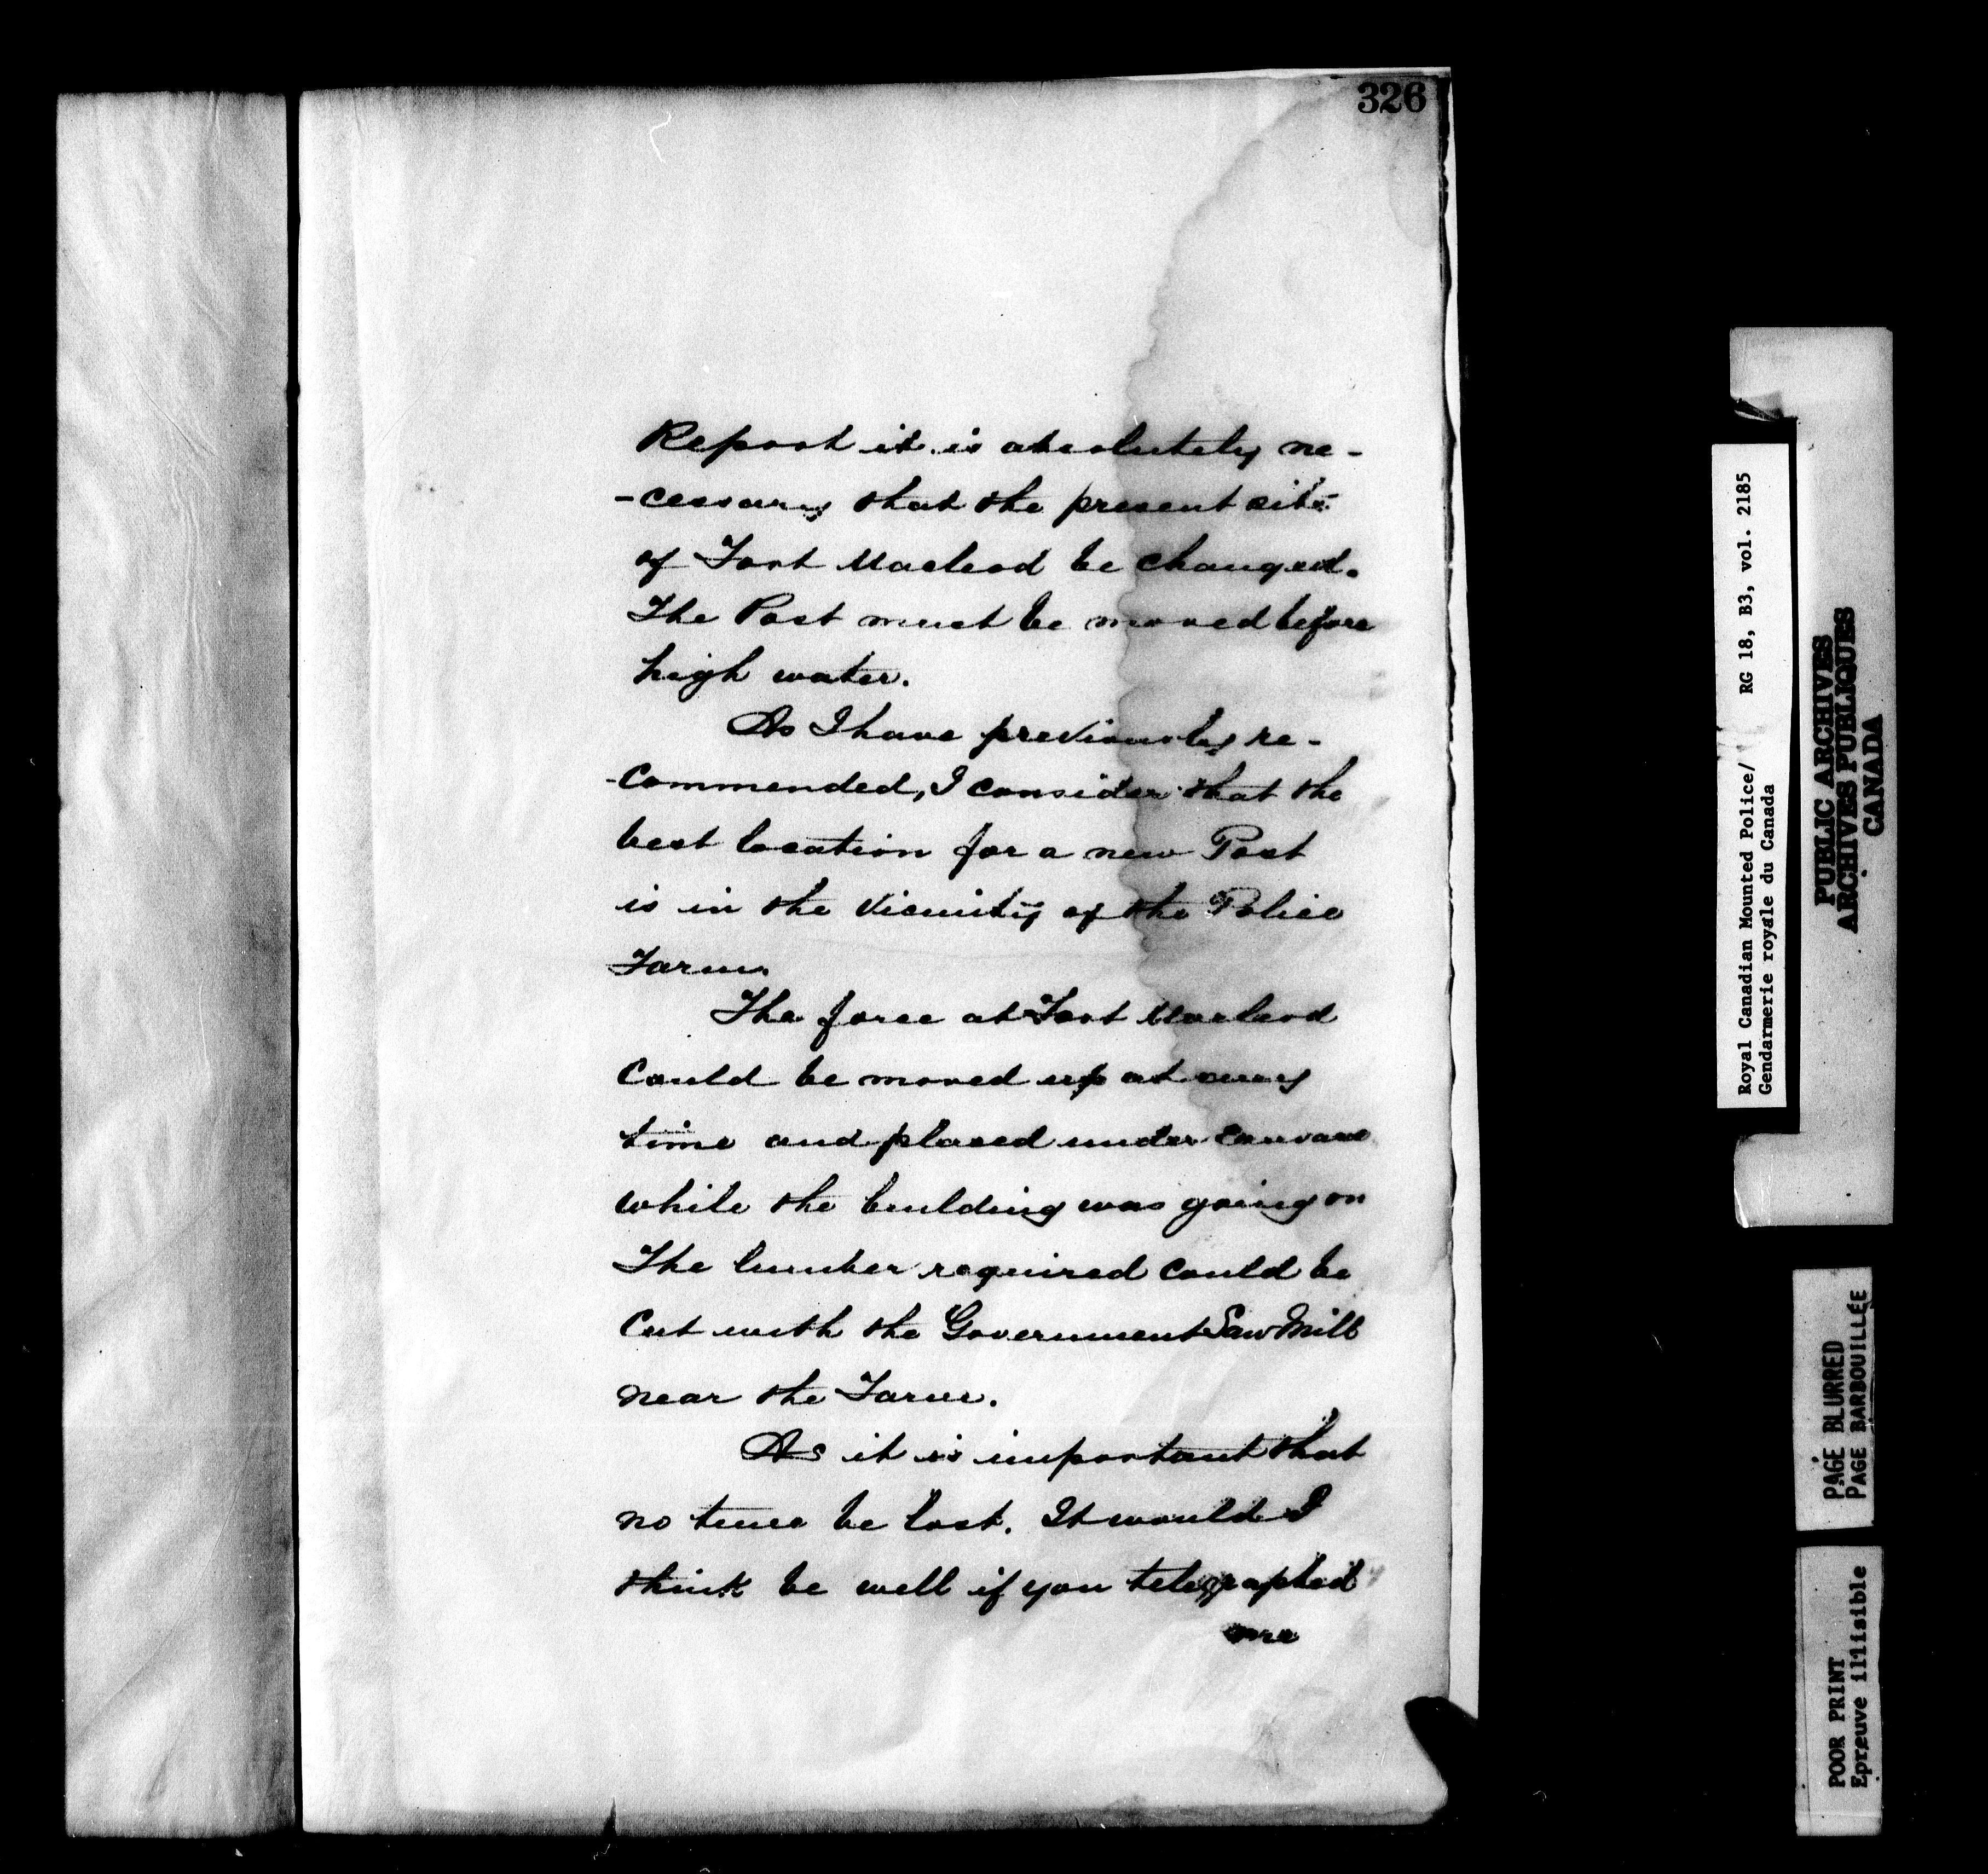 326
Report it is absolutely ne-
-cessary that the present site
of Fort Macleod be changed.
The Post must be moved before
high water.
As I have previously re-
-commended, I consider that the
best location for a new Post
is in the vicinity of the Police
Farm.
The force at Fort Macleod
could be moved up at any
time and placed under canvass
while the building was going on
The lumber required could be
cut with the Government Saw Mill
near the Farm.
As it is important that
no time be lost. It would I
think be well if you telegraphed
me
Royal Canadian Mounted Police/ RG 18, B3, vol. 2185
Gendarmerie royale du Canada
PUBLIC ARCHIVES
ARCHIVES PUBLIQUES
CANADA
PAGE BLURRED
PAGE BARBOUILLÉE
POOR PRINT
Epreuve illisible